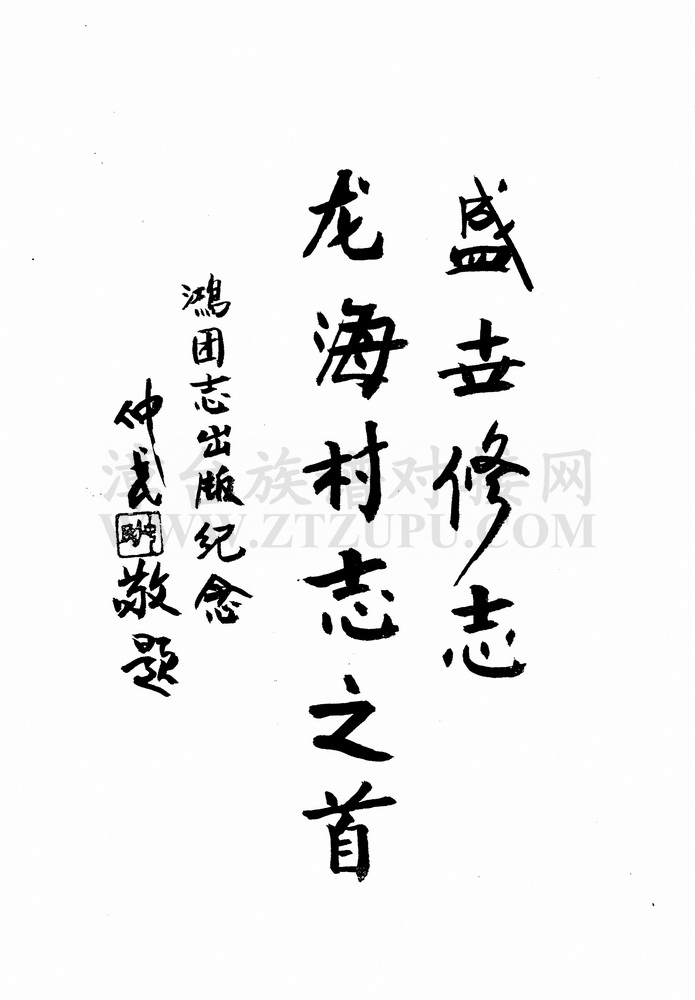 盛世修志
龙海村志之首
鸿团志出版纪念
仲民敬题
WWW.ZTZUPU.COM